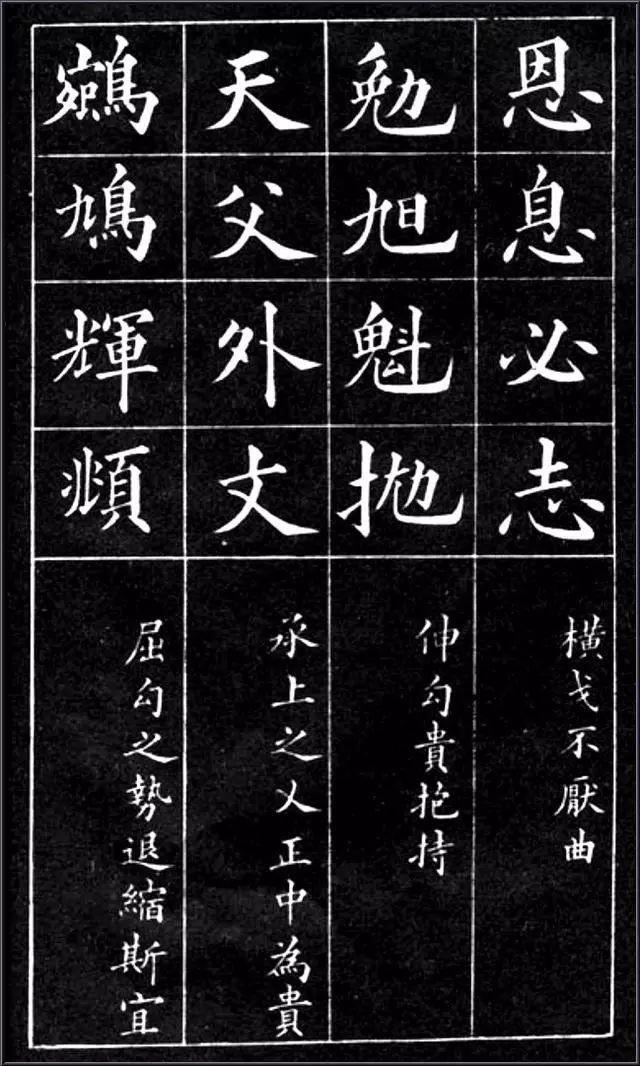 恩息必志
横戈不厭曲
勉旭魁抛
伸勾貴抱持
天父外丈
承上之乂正中為貴
鳩輝頫
屈勾之勢退縮斯宜